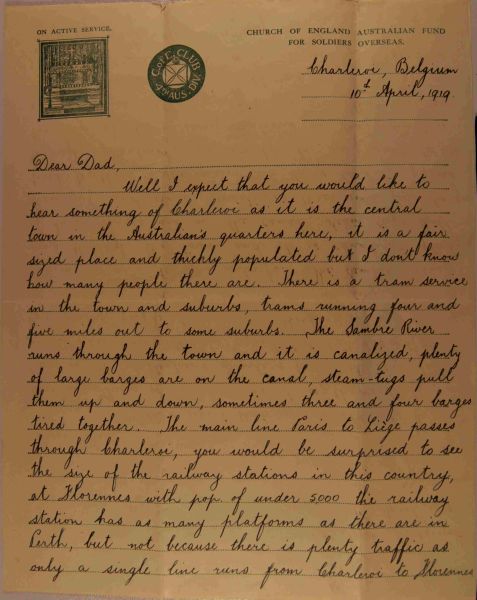 ON ACTIVE SERVICE.
CHURCH OF ENGLAND AUSTRALIAN FUND
FOR SOLDIERS OVERSEAS.
C of E. CLUB
4th AUS. DIV.
Charleroi, Belgium
10th April, 1919.
Dear Dad,
Well I expect that you would like to
hear something of Charleroi as it is the central
town in the Australian's quarters here, it is a fair
sized place and thickly populated but I don't know
how many people there are. There is a tram service
in the town and suburbs, trams running four and
five miles out to some suburbs. The Sambre River
runs through the town and it is canalized, plenty
of large barges are on the canal, steam-tugs pull
them up and down, sometimes three and four barges
tired together. The main line Paris to Liège passes
through Charleroi, you would be surprised to see
the size of the railway stations in this country,
at Florennes with pop. of under 5000 the railway
station has as many platforms as there are in
Perth, but not because there is plenty traffic as
only a single line runs from Charleroi to Florennes